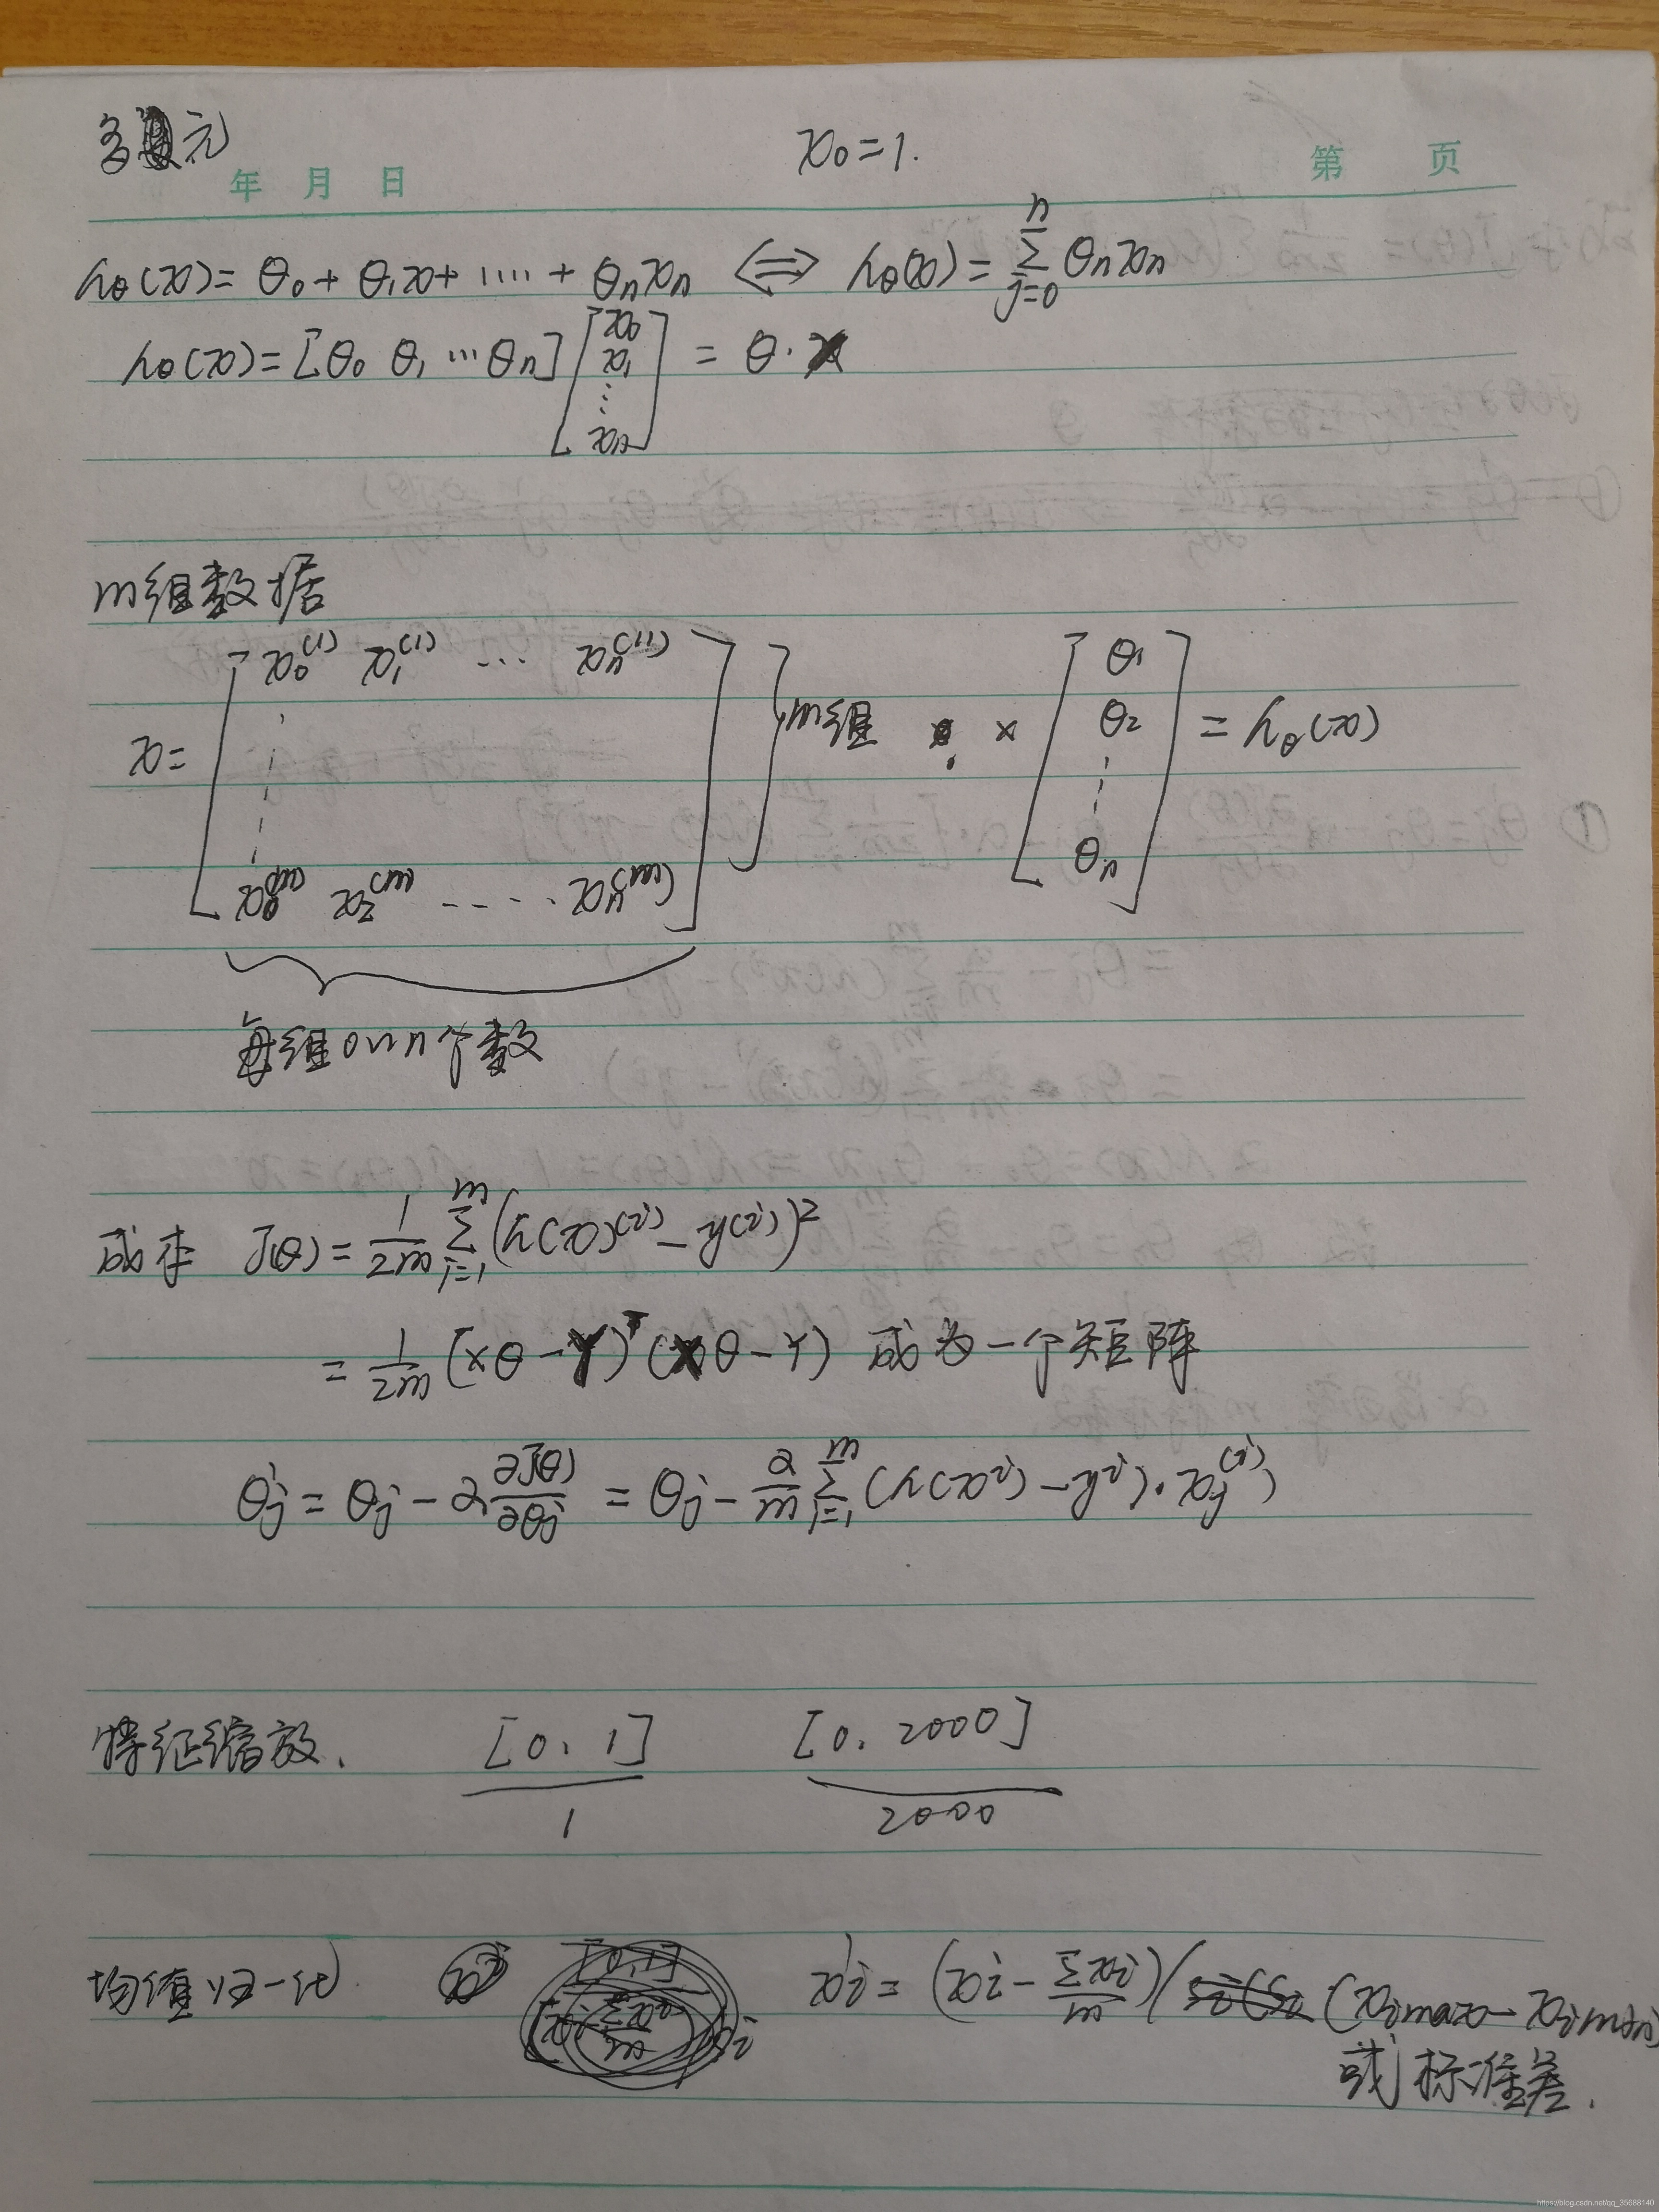 多元 x₀=1.
年 月 日 第 页
hθ(x)= θ₀+ θ₁x+ ···· + θₙxₙ ⟺ hθ(x)= Σ_{j=0}^{n} θₙxₙ
hθ(x)= [θ₀ θ₁ ··· θₙ] [x₀ x₁ ⋮ xₙ] = θ·x
m组数据
x= [x₀⁽¹⁾ x₁⁽¹⁾ ··· xₙ⁽¹⁾ ⋮ x₀⁽ᵐ⁾ x₂⁽ᵐ⁾ ····· xₙ⁽ᵐ⁾] m组 × [θ₁ θ₂ ⋮ θₙ] = hθ(x)
每组0~n个数
成本 J(θ) = 1/2m Σ_{i=1}^{m} (h(x)⁽ⁱ⁾ - y⁽ⁱ⁾)²
= 1/2m (xθ - Y)ᵀ (xθ - Y) 成为一个矩阵
θj' = θj - α ∂J(θ)/∂θj = θj - α/m Σ_{i=1}^{m} (h(xⁱ) - yⁱ)·xj⁽ⁱ⁾
特征缩放. [0, 1]/1 [0, 2000]/2000
均值归一化 xi' = (xi - Σxi/m)/(xi max - xi min)
或标准差.
https://blog.csdn.net/qq_35688140